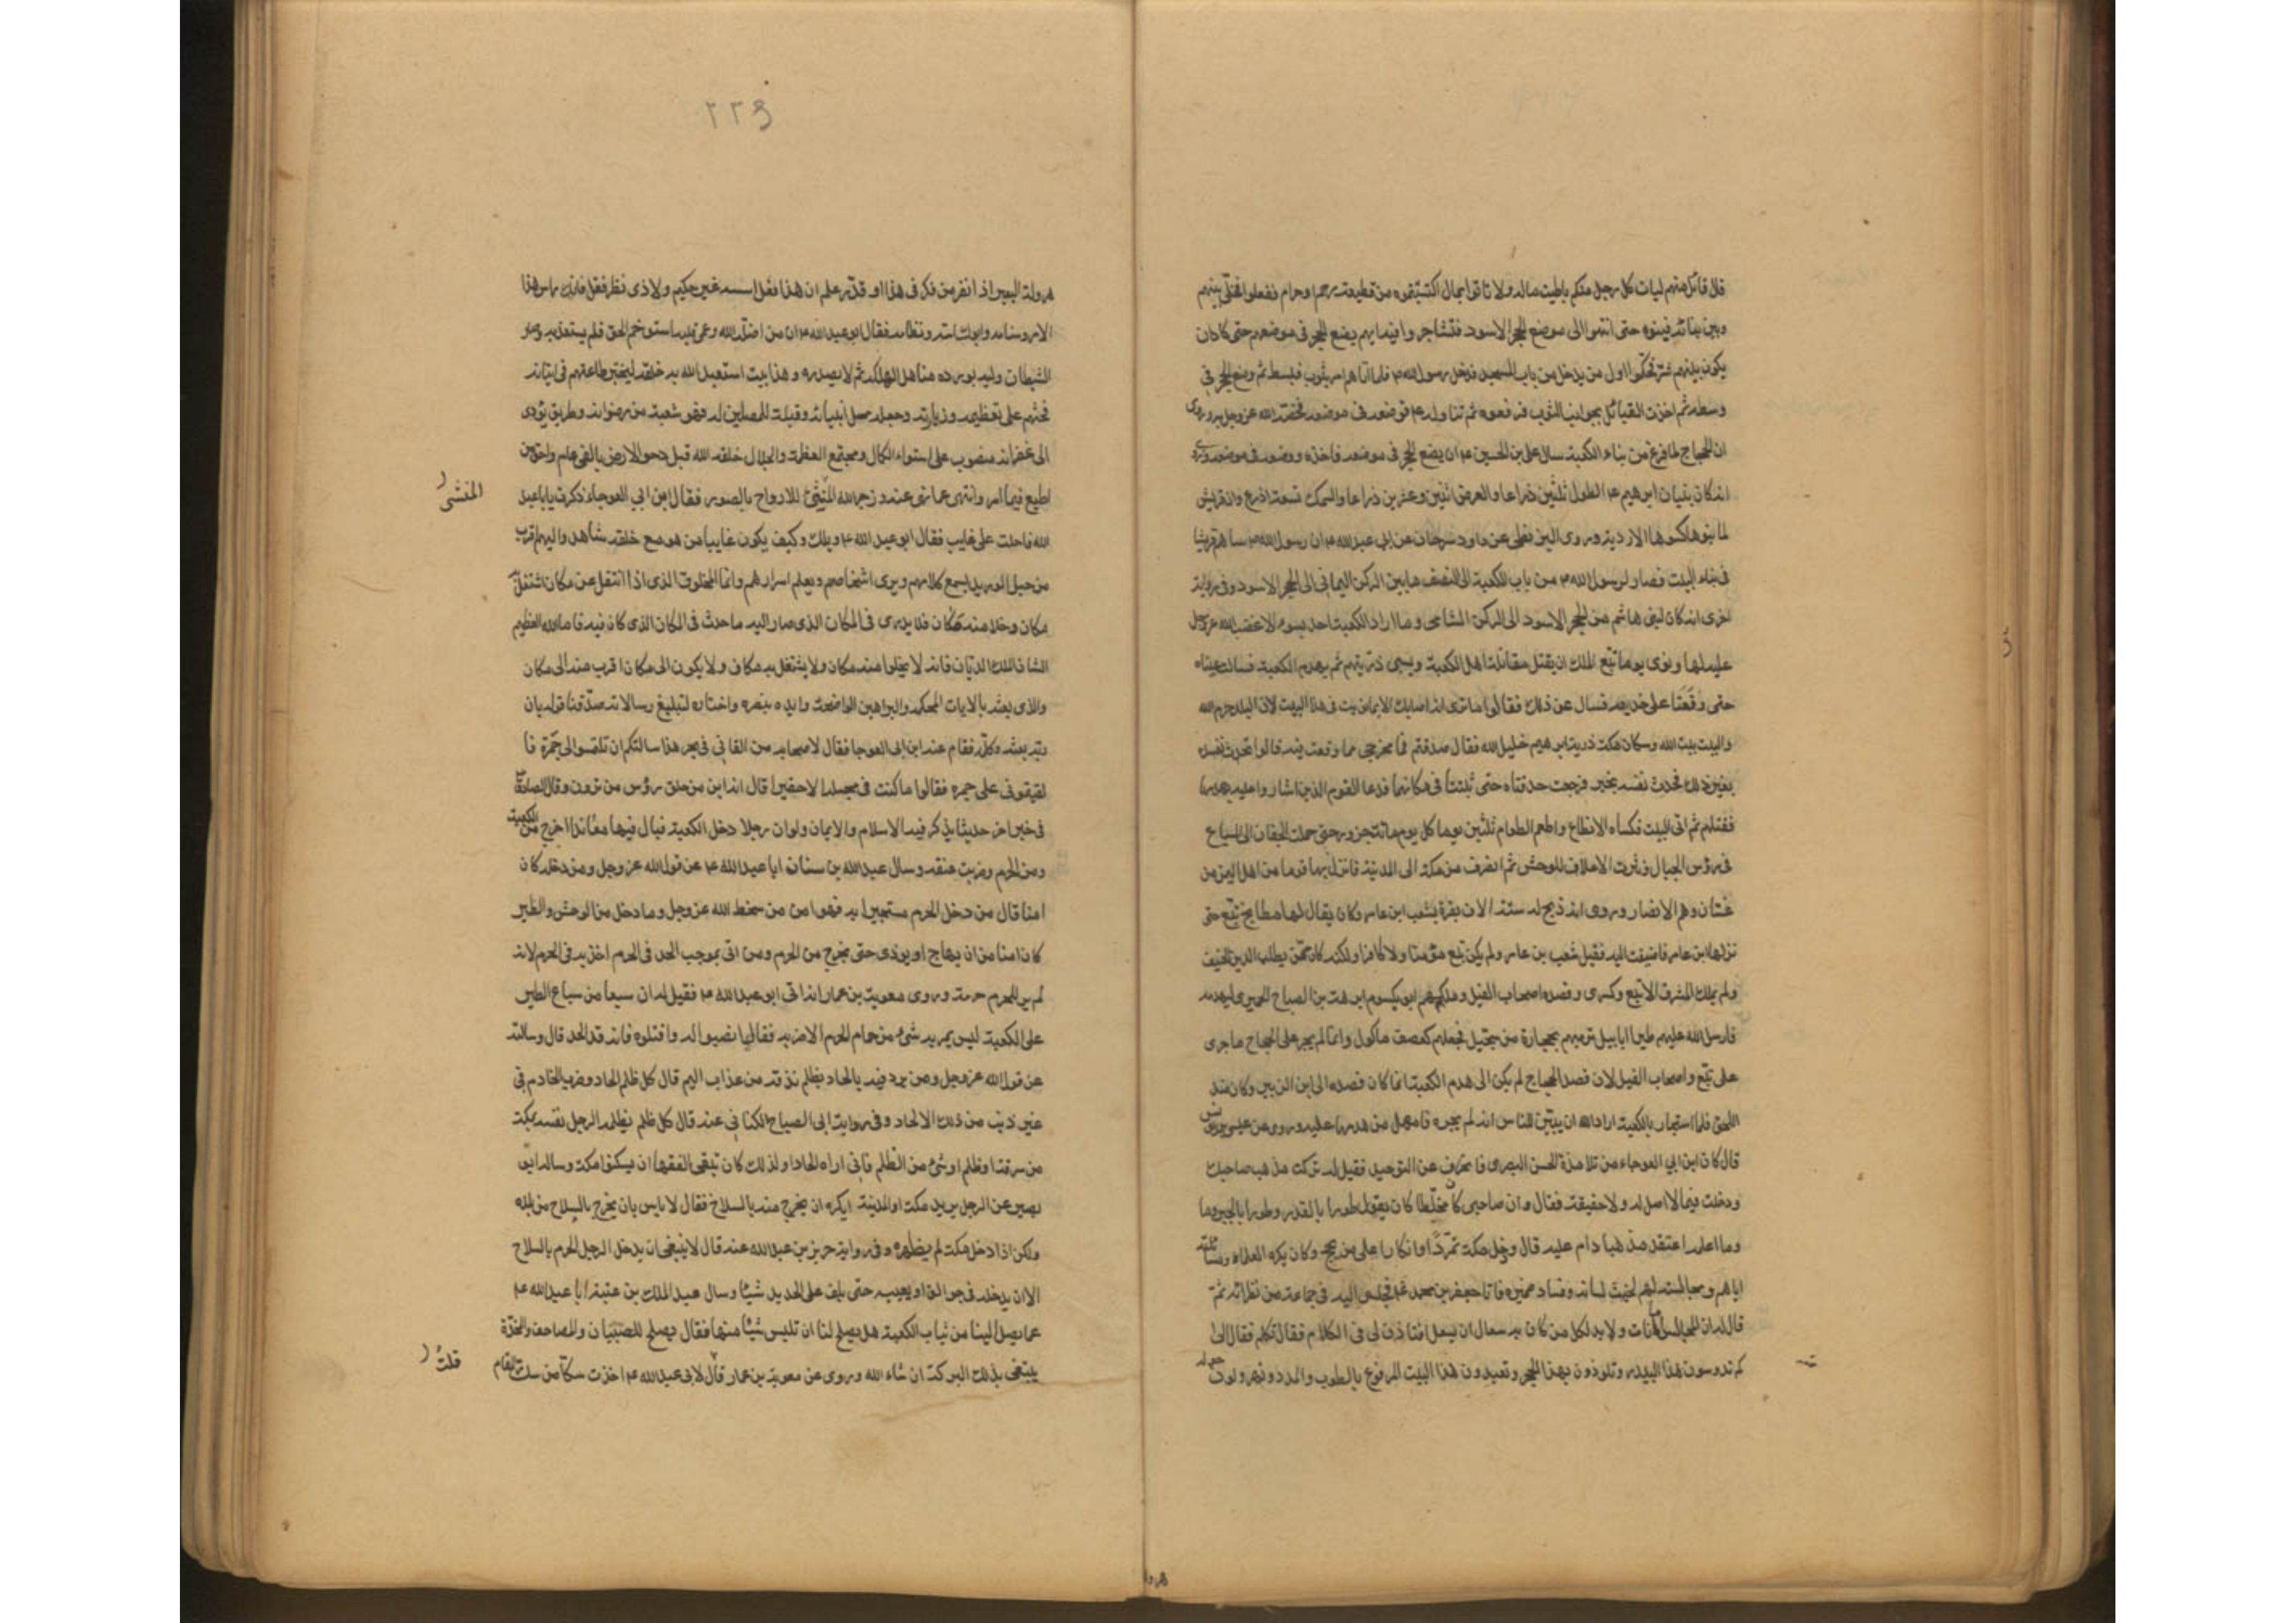 قال قائل منهم ليات كل رجل منكم باطيب ماله ولا تاتوا بمال اكتسبتموه من قطيعة رحم او حرام ففعلوا فخلى بينهم
وبين بنائه فبنوه حتى انتهوا الى موضع الحجر الاسود فتشاجروا فيه ايهم يضع الحجر في موضعه حتى كاد ان
يكون بينهم شر فحكموا اول من يدخل من باب المسجد فدخل رسول الله ص فلما اتاهم امر بثوب فبسط ثم وضع الحجر في
وسطه ثم اخذت القبائل بجوانب الثوب فرفعوه ثم تناوله ع فوضعه في موضعه فخصه الله عز وجل به وروى
ان الحجاج لما فرغ من بناء الكعبة سال علي بن الحسين ع ان يضع الحجر في موضعه فاخذه ووضعه في موضعه وروى
انه كان بنيان ابرهيم ع الطول ثلثين ذراعا والعرض اثنين وعشرين ذراعا والسمك تسعة اذرع وان قريش
لما بنوها كسوها الاردية وروى البزنطي عن داود سرحان عن ابي عبد الله ع ان رسول الله ص ساهم قريشا
في بناء البيت فصار لرسول الله ص من باب الكعبة الى النصف ما بين الركن اليماني الى الحجر الاسود وفي رواية
اخرى انه كان لبني هاشم من الحجر الاسود الى الركن الشامي وما اراد الكعبة احد بسوء الا غضب الله عز وجل
عليه لها ونوى يوما تبع الملك ان يقتل مقاتلة اهل الكعبة ويسبي ذريتهم ثم يهدم الكعبة فسالت عيناه
حتى وقعتا على خديه فسال عن ذلك فقالوا ما نرى الذي اصابك الا بما نويت في هذا البيت لان البلد حرم الله
والبيت بيت الله وسكان مكة ذرية ابرهيم خليل الله فقال صدقتم فما مخرجي مما وقعت فيه قالوا تحدث نفسك
بغير ذلك فحدث نفسه بخير فرجعت حدقتاه حتى ثبتتا في مكانهما فدعا القوم الذين اشاروا عليه بهدمها
فقتلهم ثم اتى البيت فكساه الانطاع واطعم الطعام ثلثين يوما كل يوم مائة جزور حتى حملت الجفان الى السباع
في رؤس الجبال ونثرت الاعلاف للوحش ثم انصرف من مكة الى المدينة فانزل بها قوما من اهل اليمن من
غسان وهم الانصار وروى انه ذبح له ستة الاف بقرة بشعب ابن عامر وكان يقال لها مطابخ تبع حتى
نزلها ابن عامر فاضيفت اليه فقيل شعب بن عامر ولم يكن تبع مؤمنا ولا كافرا ولكنه كان ممن يطلب الدين الحنيف
ولم يملك المشرق الا تبع وكسرى وقصده اصحاب الفيل وملكهم ابو يكسوم ابرهة بن الصباح الحميري ليهدمه
فارسل الله عليهم طيرا ابابيل ترميهم بحجارة من سجيل فجعلهم كعصف ماكول وانما لم يجر على الحجاج ما جرى
على تبع واصحاب الفيل لان قصد الحجاج لم يكن الى هدم الكعبة انما كان قصده الى ابن الزبير وكان ضد
الحق فلما استجار بالكعبة اراد الله ان يبين للناس انه لم يجره فامهل من هدمها عليه وروى عن عيسى بن يونس
قال كان ابن ابي العوجاء من تلامذة الحسن البصري فانحرف عن التوحيد فقيل له تركت مذهب صاحبك
ودخلت فيما لا اصل له ولا حقيقة فقال ان صاحبي كان مخلطا كان يقول طورا بالقدر وطورا بالجبر وما
وما اعلمه اعتقد مذهبا دام عليه قال ودخل مكة تمردا وانكارا على من يحج وكان يكره العلماء مسائلته
اياهم ومجالسته لهم لخبث لسانه وفساد ضميره فاتا جعفر بن محمد ع فجلس اليه في جماعة من نظرائه ثم
قال له ان المجالس امانات ولا بد لكل من كان به سعال ان يسعل افتاذن لي في الكلام فقال تكلم فقال الى
كم تدوسون هذا البيدر وتلوذون بهذا الحجر وتعبدون هذا البيت المرفوع بالطوب والمدر وتهرولون حوله
هرولة
٢٢٤
هرولة البعير اذا نفر من فكر في هذا او قدر علم ان هذا فعل اسسه غير حكيم ولا ذي نظر فقل فانك راس هذا
الامر وسنامه وابوك اسه ونظامه فقال ابو عبد الله ع ان من اضله الله وعمي قلبه استوخم الحق فلم يستعذبه وصار
الشيطان وليه يورده مناهل الهلكة ثم لا يصدره وهذا بيت استعبد الله به خلقه ليختبر طاعتهم في اتيانه
فحثهم على تعظيمه وزيارته وجعله محل انبيائه وقبلة للمصلين له فهو شعبة من رضوانه وطريق تؤدى
الى غفرانه منصوب على استواء الكمال ومجتمع العظمة والجلال خلقه الله قبل دحو الارض بالفي عام واحق من
اطيع فيما امر وانتهى عما نهى عنه وزجر الله المنشئ للارواح بالصور فقال ابن ابي العوجاء ذكرت يا ابا عبد
المنشى
الله فاحلت على غايب فقال ابو عبد الله ع ويلك وكيف يكون غايبا من هو مع خلقه شاهد واليهم اقرب
من حبل الوريد يسمع كلامهم ويرى اشخاصهم ويعلم اسرارهم وانما المخلوق الذي اذا انتقل عن مكان اشتغل به
مكان وخلا منه مكان فلا يدرى في المكان الذي صار اليه ما حدث في المكان الذي كان فيه فاما الله العظيم
الشان الملك الديان فانه لا يخلوا منه مكان ولا يشتغل به مكان ولا يكون الى مكان اقرب منه الى مكان
والذي بعثه بالايات المحكمة والبراهين الواضحة وايده بنصره واختاره لتبليغ رسالاته صدقنا قوله بان
ربه بعثه وكلمه فقام عنه ابن ابي العوجا فقال لاصحابه من القاني في بحر هذا سالتكم ان تلتمسوا لي خمرة فا
لقيتموني على جمرة فقالوا ما كنت في مجلسه الا حقيرا قال انه ابن من حلق رؤس من ترون وقال الصادق
في خبر اخر حديثا يذكر فيه الاسلام والايمان ولو ان رجلا دخل الكعبة فبال فيها معاندا اخرج من الكعبة
ومن الحرم وضربت عنقه وسال عبد الله بن سنان ابا عبد الله ع عن قول الله عز وجل ومن دخله كان
امنا قال من دخل الحرم مستجيرا به فهو امن من سخط الله عز وجل وما دخل من الوحش والطير
كان امنا من ان يهاج او يوذى حتى يخرج من الحرم ومن اتى بموجب الحد في الحرم اخذ به في الحرم لانه
لم ير للحرم حرمة وروى معوية بن عمار انه اتى ابو عبد الله ع فقيل له ان سبعا من سباع الطير
على الكعبة ليس يمر به شئ من حمام الحرم الا ضربه فقال انصبوا له واقتلوه فانه قد الحد قال وسالته
عن قول الله عز وجل ومن يرد فيه بالحاد بظلم نذقه من عذاب اليم قال كل ظلم الحاد وضرب الخادم في
غير ذنب من ذلك الالحاد وفي رواية ابي الصباح الكناني عنه قال كل ظلم يظلمه الرجل نفسه بمكة
من سرقة او ظلم او شئ من الظلم فاني اراه الحادا ولذلك كان تبقى الفقها ان يسكنوا مكة وساله ابو
بصير عن الرجل يريد مكة او المدينة ايكره ان يخرج منه بالسلاح فقال لا باس بان يخرج بالسلاح من بلده
ولكن اذا دخل مكة لم يظهره وفي رواية حريز بن عبد الله عنه قال لا ينبغي ان يدخل الرجل الحرم بالسلاح
الا ان يدخله في جوالق او يعيبه حتى يلف على الحديد شيئا وسال عبد الملك بن عتبة ابا عبد الله ع
عما يصل الينا من ثياب الكعبة هل يصلح لنا ان نلبس شيئا منها فقال يصلح للصبيان والمصاحف والمخدة
يبتغى بذلك البركة ان شاء الله وروى عن معوية بن عمار قال لابي عبد الله ع اخذت سكا من سك المقام
قلت